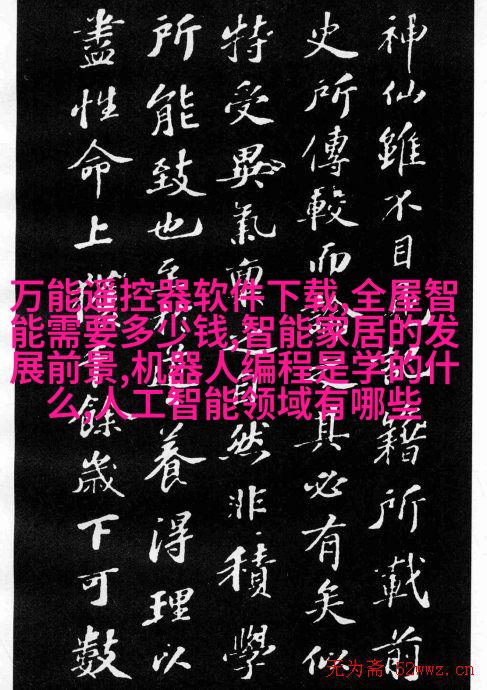 万能遥控器软件下载,全屋智
能需要多少钱,智能家居的发
展前景,机器人编程是学的什
么,人工智能领域有哪些
神仙雖不目籍所載前
史所傳較而其必有矣似
特受異氣然非積學
所能致也養得理以
盡性命上餘歲下可數
无为斋 52wwz.cn